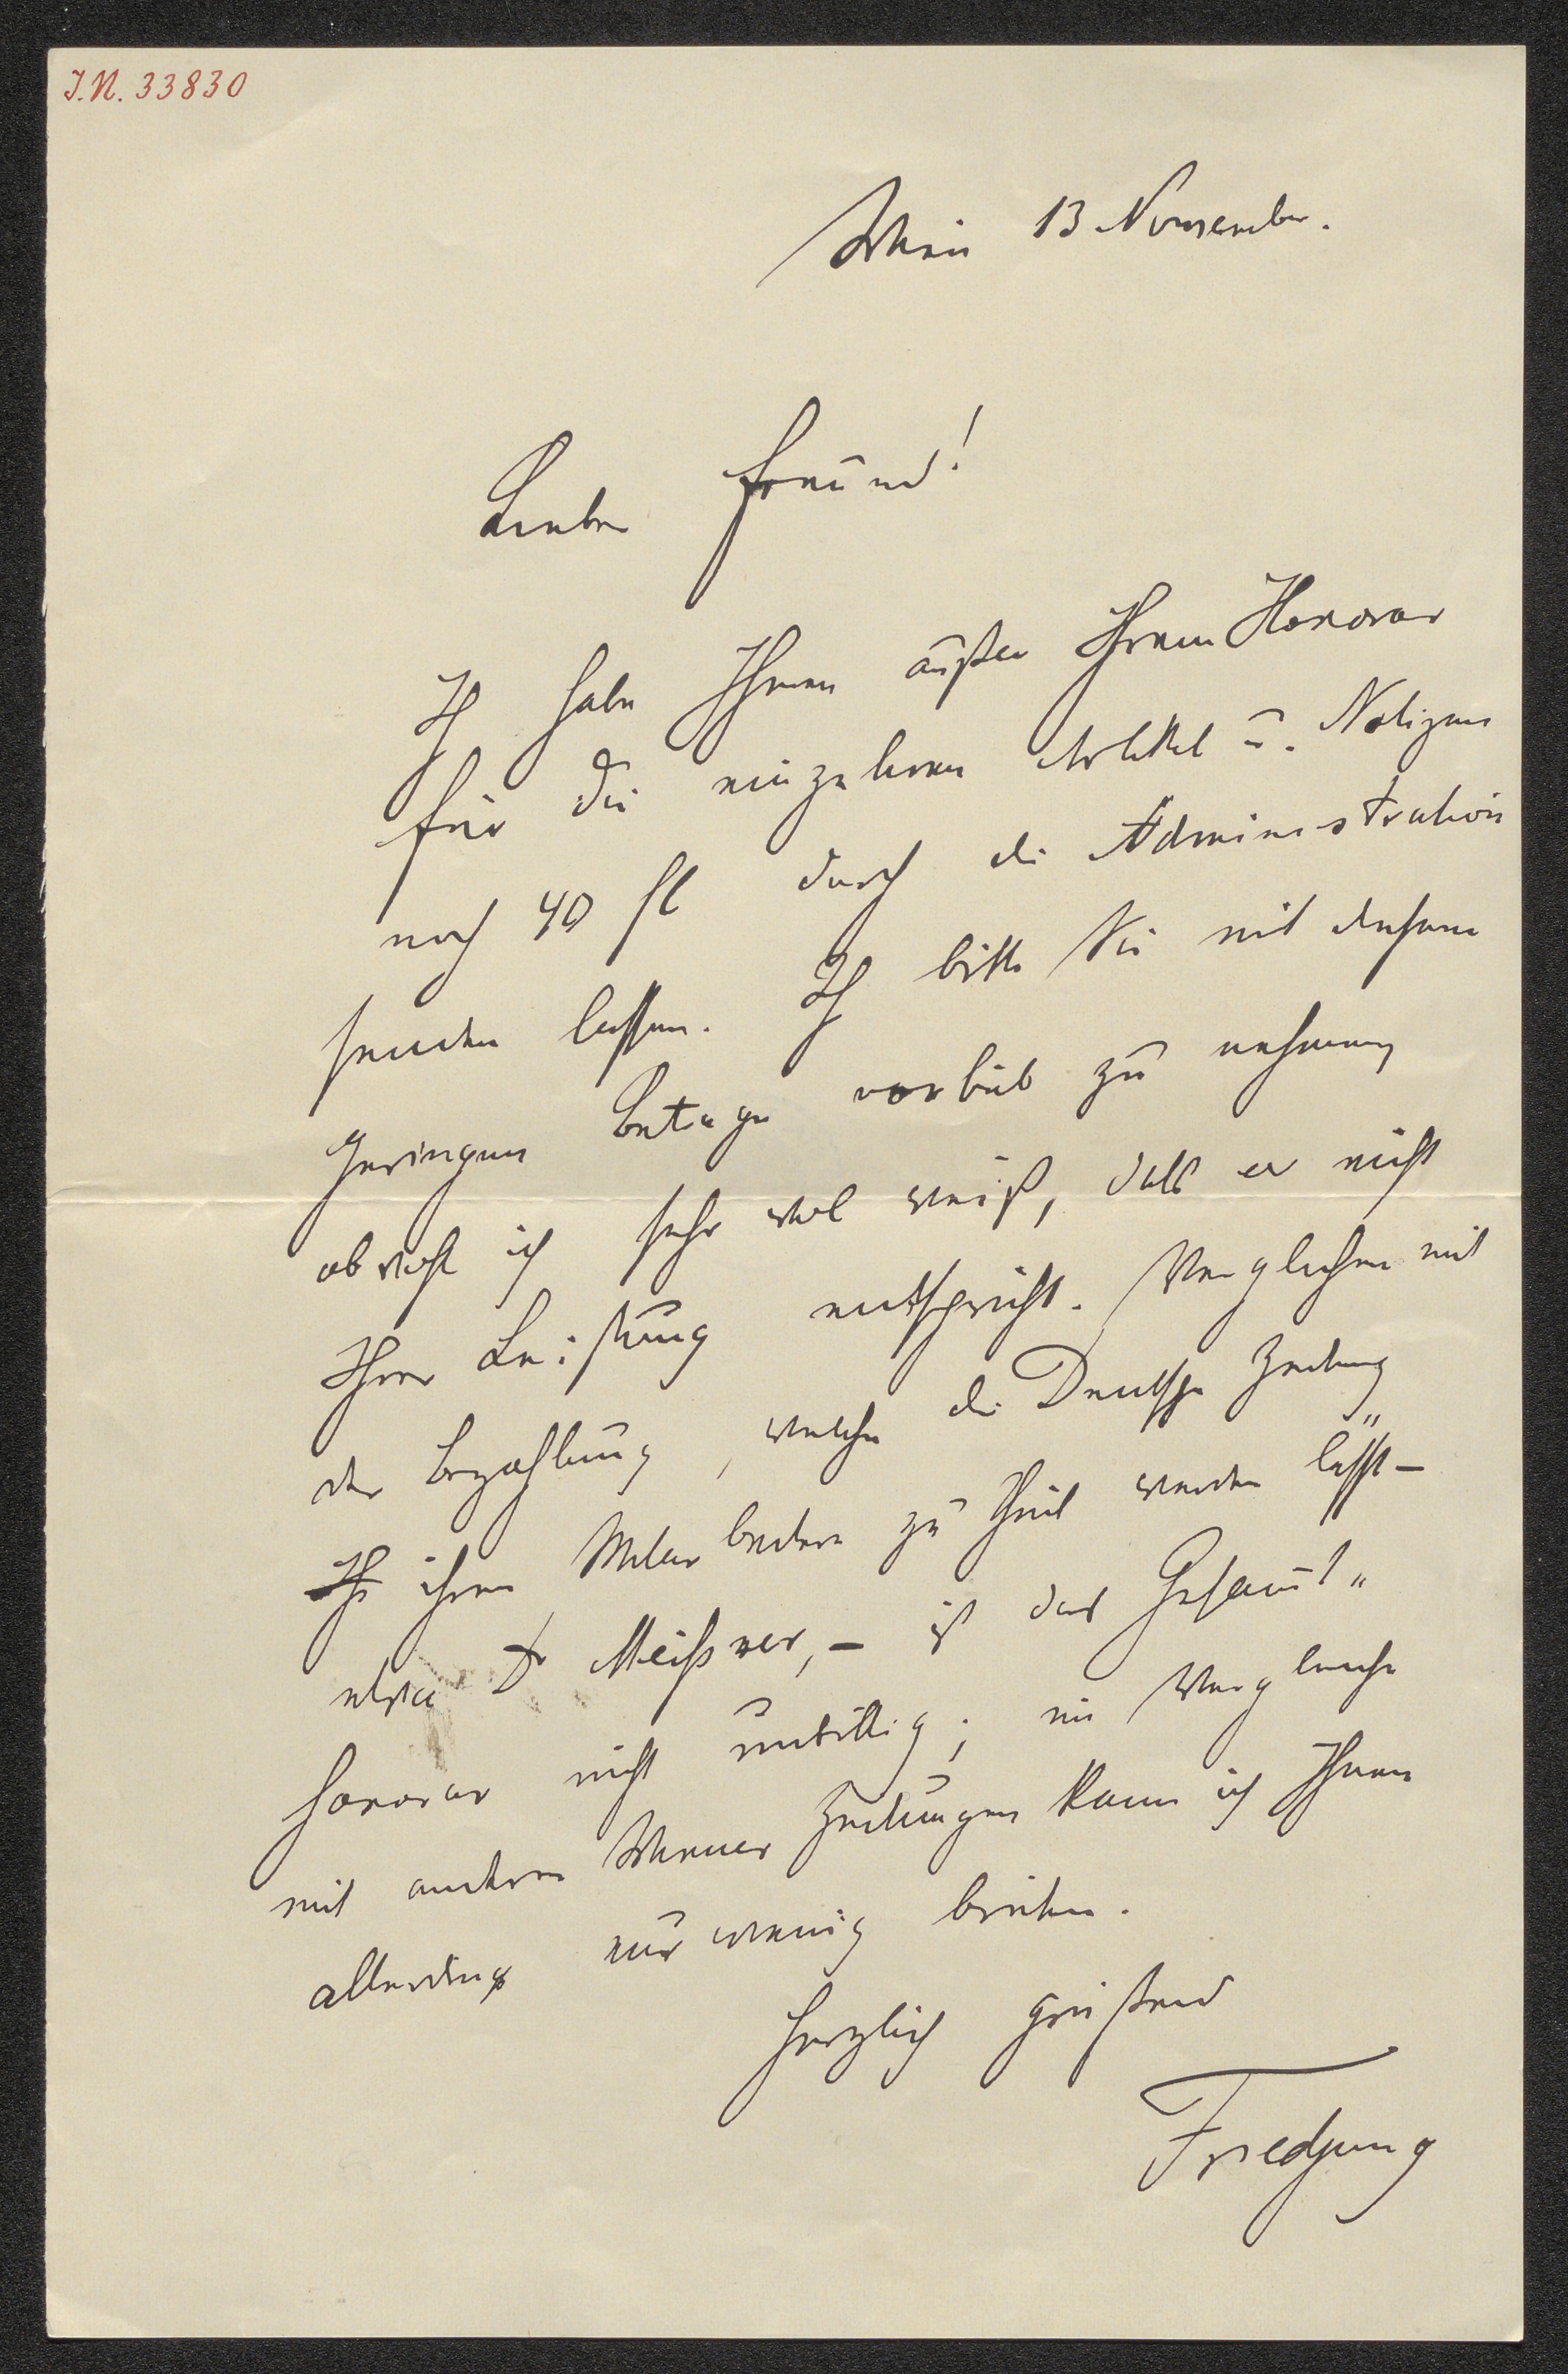 J.N. 33830
Wien 13 November.
Lieber Freund!
Ich habe Ihnen außer Ihrem Honorar
für die einzelnen Artikel u. Notizen
noch 40 fl durch die Administration
senden lassen. Ich bitte Sie mit diesem
geringen Betage vorlieb zu nehmen,
obwohl ich sehr wol weiß, daß er nicht
Ihrer Leistung entspricht. Verglichen mit
der Bezahlung, welche die Deutsche Zeitung
Ihr ihren Mitarbeitern zu Theil werden läßt –
etwa Dr Meißner, – ist das Gesamt"
honorar nicht unbillig; im Vergleiche
mit andern Wiener Zeitungen kann ich Ihnen
allerdings nur wenig bieten.
Herzlich grüßend
Friedjung